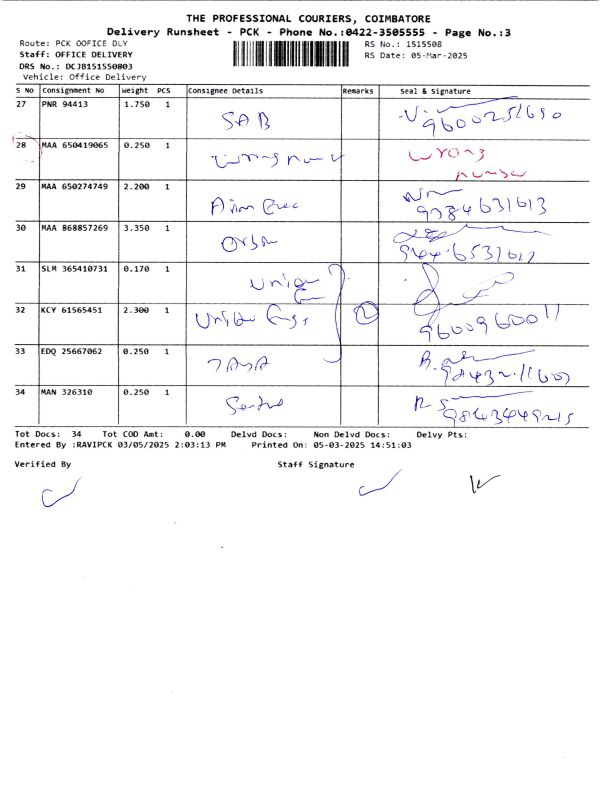 THE PROFESSIONAL COURIERS, COIMBATORE
Delivery Runsheet - PCK - Phone No.:0422-3505555 - Page No.:3
Route: PCK OOFICE DLY
RS No.: 1515508
Staff: OFFICE DELIVERY
RS Date: 05-Mar-2025
DRS No.: DCJB151550803
Vehicle: Office Delivery
S No Consignment No Weight PCS Consignee Details Remarks Seal & Signature
27 PNR 94413 1.750 1 SAB
28 MAA 650419065 0.250 1 wrong
29 MAA 650274749 2.200 1 9384631613
30 MAA 868857269 3.350 1
31 SLM 365410731 0.170 1 Unique
32 KCY 61565451 2.300 1 2 9600960011
33 EDQ 25667062 0.250 1
34 MAN 326310 0.250 1
Tot Docs: 34 Tot COD Amt: 0.00 Delvd Docs: Non Delvd Docs: Delvy Pts:
Entered By :RAVIPCK 03/05/2025 2:03:13 PM Printed On: 05-03-2025 14:51:03
Verified By Staff Signature